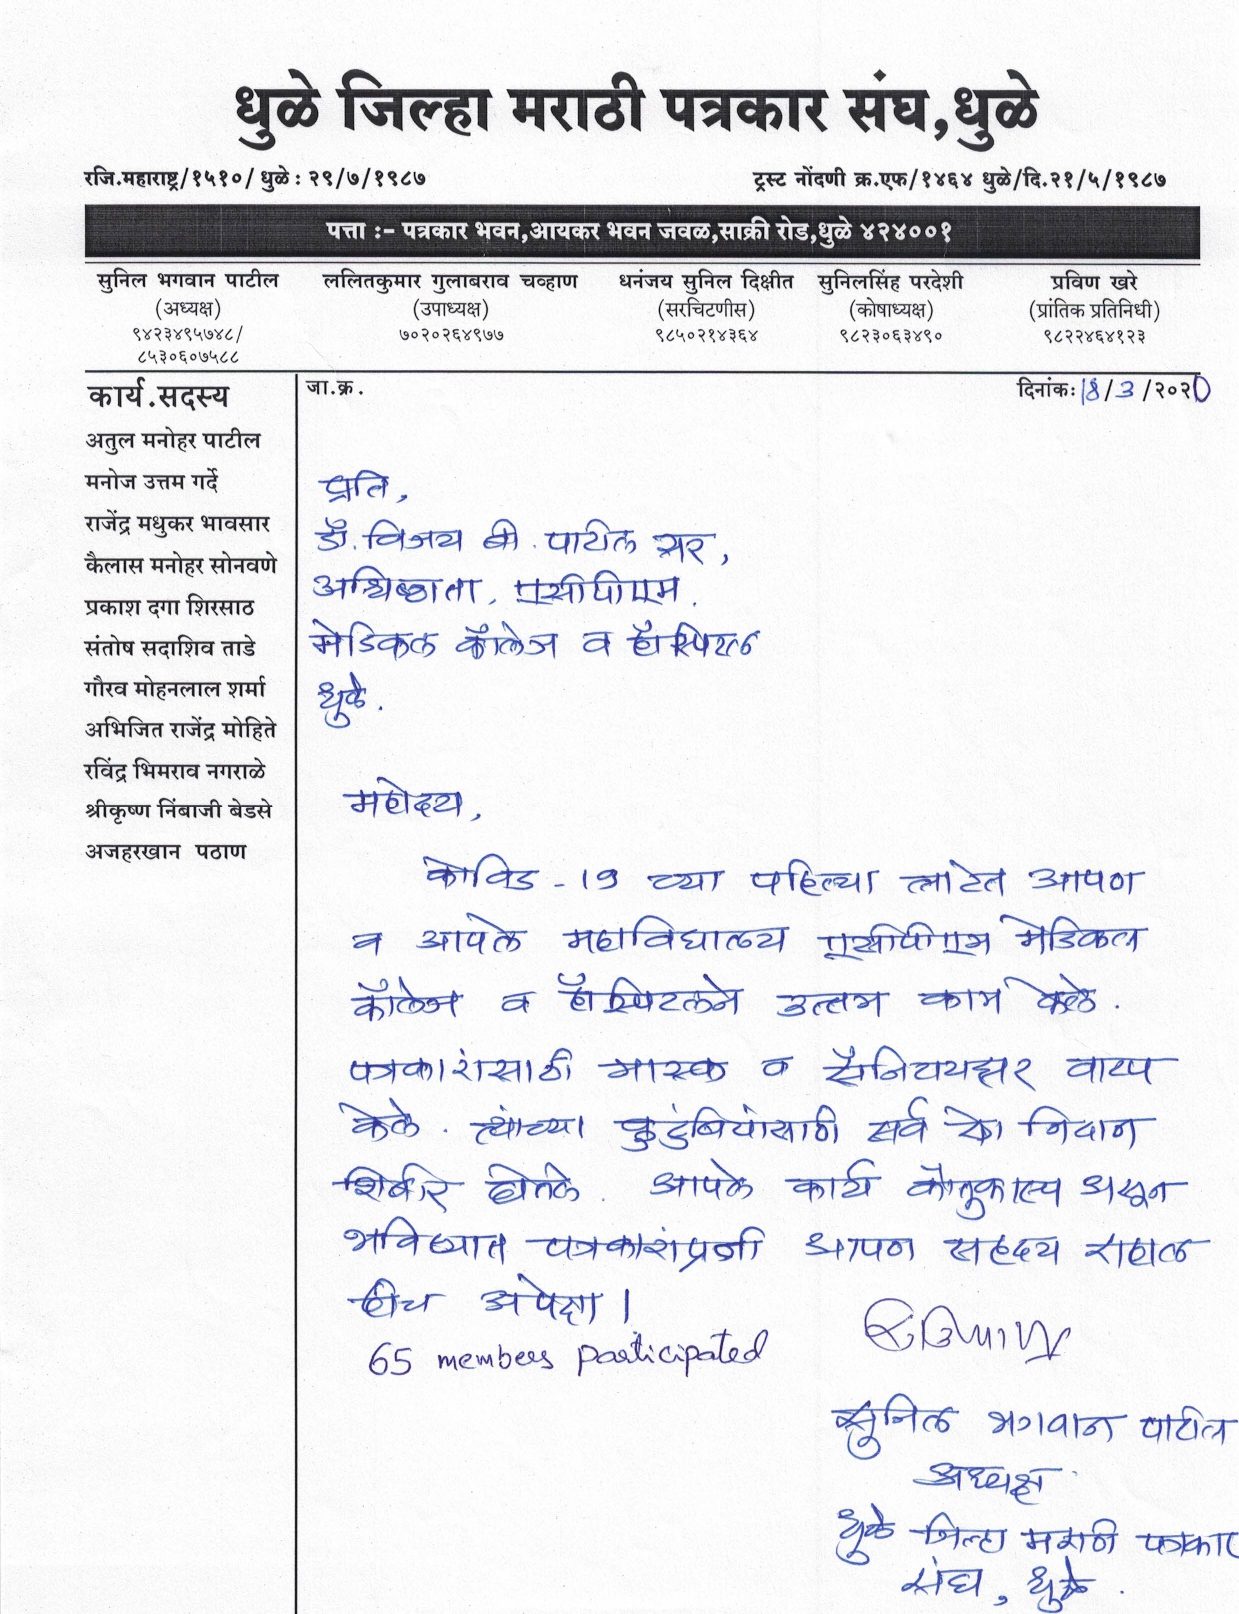 धुळे जिल्हा मराठी पत्रकार संघ,धुळे
रजि.महाराष्ट्र/१५१०/ धुळे : २९/७/१९८७ ट्रस्ट नोंदणी क्र.एफ/१४६४ धुळे/दि.२१/५/१९८७
पत्ता :- पत्रकार भवन,आयकर भवन जवळ,साक्री रोड,धुळे ४२४००१
सुनिल भगवान पाटील ललितकुमार गुलाबराव चव्हाण धनंजय सुनिल दिक्षीत सुनिलसिंह परदेशी प्रविण खरे
(अध्यक्ष) (उपाध्यक्ष) (सरचिटणीस) (कोषाध्यक्ष) (प्रांतिक प्रतिनिधी)
९४२३४९५७४८/ ७०२०२६४९७७ ९८५०२१४३६४ ९८२३०६३४९० ९८२२४६४१२३
८५३०६०७५८८
कार्य.सदस्य
अतुल मनोहर पाटील
मनोज उत्तम गर्दे
राजेंद्र मधुकर भावसार
कैलास मनोहर सोनवणे
प्रकाश दगा शिरसाठ
संतोष सदाशिव ताडे
गौरव मोहनलाल शर्मा
अभिजित राजेंद्र मोहिते
रविंद्र भिमराव नगराळे
श्रीकृष्ण निंबाजी बेडसे
अजहरखान पठाण
जा.क्र. दिनांक: 18/3/२०२0
प्रति,
डॉ. विजय बी. पाटील सर,
अधिष्ठाता, एसीपीएम.
मेडिकल कॉलेज व हॉस्पिटल
धुळे.
महोदय,
कोविड - 19 च्या पहिल्या लाटेत आपण
व आपले महाविद्यालय एसीपीएम मेडिकल
कॉलेज व हॉस्पिटलने उत्तम काम केले.
पत्रकारांसाठी मास्क व सॅनिटायझर वाटप
केले. त्यांच्या कुटुंबियांसाठी सर्व रोग निदान
शिबीर घेतले. आपले कार्य कौतुकास्प असून
भविष्यात पत्रकारांप्रती आपण सहृदय राहाल
हीच अपेक्षा।
65 members participated
सुनिल भगवान पाटील
अध्यक्ष
धुळे जिल्हा मराठी पत्रकार
संघ, धुळे.